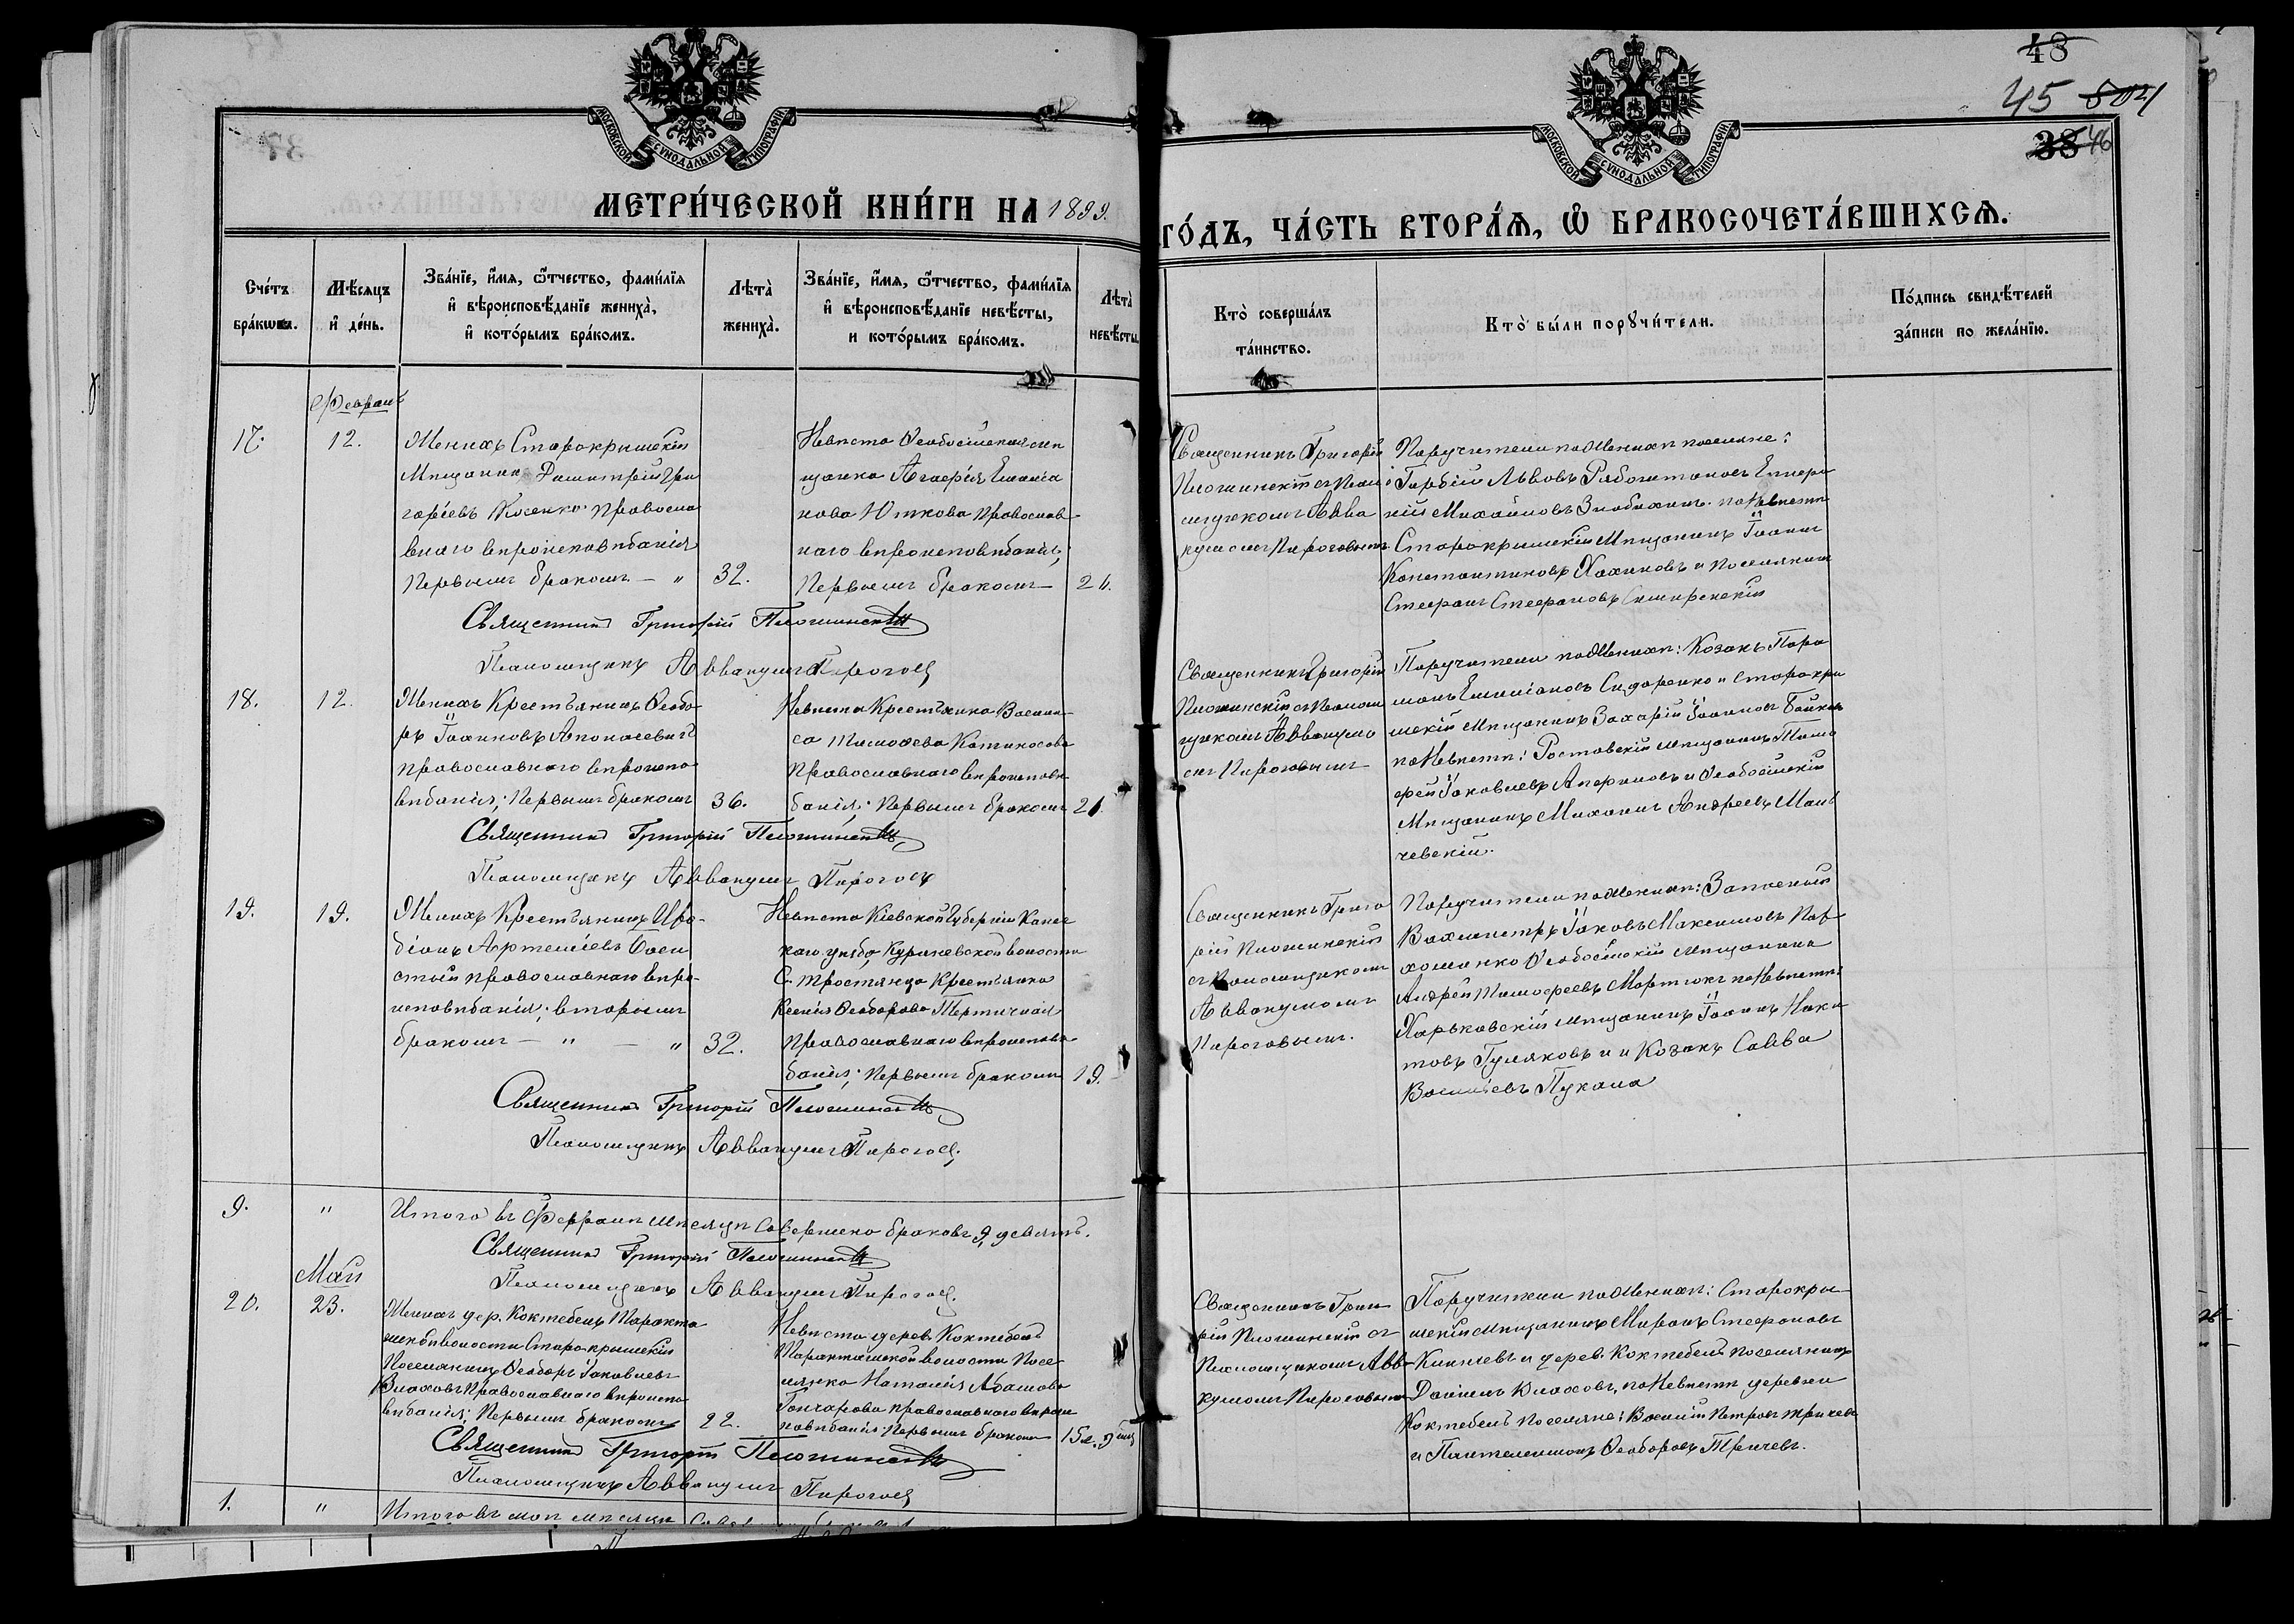 48
45 504
38 46
МОСКОВСКОЙ СѴНОДАЛЬНОЙ ТИПОГРАФІИ
МОСКОВСКОЙ СѴНОДАЛЬНОЙ ТИПОГРАФІИ
МЕТРИ́ЧЕСКОЙ КНИ́ГИ НА 1899.
ГО́ДЪ, ЧА́СТЬ ВТОРА́Ѧ, Ѽ БРАКОСОЧЕТА́ВШИХСѦ.
Сче́тъ бра́кωвъ.
Мѣ́сяцъ и҆ де́нь.
Зва́нїе, и҆́мѧ, ѻ҆́тчество, фами́лїѧ
и҆ вѣроисповѣ́данїе жениха̀,
и҆ кото́рымъ бра́комъ.
Лѣта̀ жениха̀.
Зва́нїе, и҆́мѧ, ѻ҆́тчество, фами́лїѧ
и҆ вѣроисповѣ́данїе невѣ́сты,
и кото́рымъ бра́комъ.
Лѣта̀ невѣ́сты.
Кто̀ соверша́лъ
та́инство.
Кто̀ бы́ли порꙋчи́тели.
По́дпись свидѣ́телей
за́писи по жела́нїю.
Февраль
17. 12.
Женихъ Старокрымскій
Мѣщанинъ Димитрій Гри
горіевъ Косенко православ
наго вѣроисповѣданія
Первымъ бракомъ — " 32.
Невѣста Ѳеодосійская мѣ
щанка Агафія Емиліа
нова Юткова православ
наго вѣроисповѣданія,
Первымъ бракомъ — 21.
Священникъ Григорій
Псаломщикомъ Авва
кумомъ Пироговымъ
Поручители по Женихѣ поселяне:
Михайловъ по Невѣстѣ
Старокрымскій Мѣщанинъ Іоаннъ
Константиновъ и Поселянинъ
Стефанъ Стефановъ
Священникъ Григорій
Псаломщикъ Аввакумъ Пироговъ
18. 12.
Женихъ Крестьянинъ Ѳеодо-
ръ Іоанновъ
православнаго вѣроиспо
вѣданія; Первымъ бракомъ 36.
Невѣста Крестьянка Васили-
са
Православнаго вѣроисповѣ
данія; Первымъ бракомъ 21
Священникъ Григорій
Псаломщикомъ Аввакумо
мъ Пироговымъ
Поручители по Женихѣ: Козакъ
Емиліановъ Сидоренко и Старокры
мскій Мѣщанинъ Захарій Іоанновъ
по Невѣстѣ: Ростовскій мѣщанинъ Тимо
фей Іаковлевъ и Ѳеодосійскій
Мѣщанинъ Михаилъ Андреевъ
чевскій.
Священникъ Григорій
Псаломщикъ Аввакумъ Пироговъ
19. 19.
Женихъ Крестьянинъ
Артеміевъ
православнаго вѣро-
исповѣданія; вторымъ
бракомъ — " — " 32.
Невѣста Кіевской Губерніи Канев
скаго уѣзда, волости
С. Тростянца Крестьянка
Ксенія Ѳеодорова
православнаго вѣроисповѣ
данія; Первымъ бракомъ 19.
Священникъ Григо
рій
съ Псаломщикомъ
Аввакумомъ
Пироговымъ.
Поручители по Женихѣ: Запасный
Вахмистръ Іаковъ Максимовъ Пар
хоменко Ѳеодосійскій мѣщанинъ
Андрей Тимофеевъ по Невѣстѣ:
Харьковскій мѣщанинъ Іоаннъ Ники
товъ Гуляковъ и и Козакъ Савва
Васильевъ Пукала
Священникъ Григорій
Псаломщикъ Аввакумъ Пироговъ.
9. " Итого въ Февралѣ мѣсяцѣ Совершено браковъ 9, девять.
Священникъ Григорій
Псаломщикъ Аввакумъ Пироговъ.
Май
20. 23.
Женихъ дер. Коктебель Таракта
шской волости Старокрымскій
Поселянинъ Ѳеодоръ Іаковлевъ
Влаховъ Православнаго вѣроиспо
вѣданія; Первымъ бракомъ 22.
Невѣста дерев. Коктебель
Таракташской волости Посе
лянка Наталія
Гончарова православнаго вѣроис
повѣданія: Первымъ бракомъ 15 л. 9 мц
Священникъ Григо
рій съ
Псаломщикомъ Авва
кумомъ Пироговымъ
Поручители по Женихѣ: Старокры
мскій Мѣщанинъ Миронъ Стефановъ
и дерев. Коктебель поселянинъ
Влаховъ, по Невѣстѣ деревни
Коктебель поселяне: Василій Петровъ
и Пантелеимонъ Ѳеодоровъ Тричевъ.
Священникъ Григорій
Псаломщикъ Аввакумъ Пироговъ
1. " Итого въ маѣ мѣсяцѣ